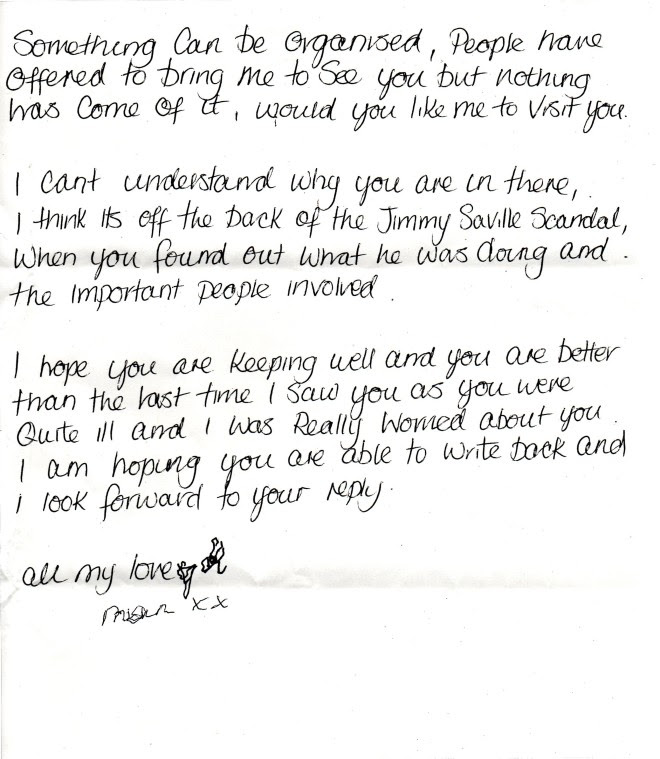 Something Can be Organised, People have
Offered to bring me to See you but nothing
has Come of it, would you like me to Visit you.
I cant understand why you are in there,
I think its off the back of the Jimmy Saville Scandal,
When you found out what he was doing and.
the important people involved.
I hope you are keeping well and you are better
than the last time I saw you as you were
Quite ill and I was Really Worried about you.
I am hoping you are able to write back and
i look forward to your reply.
all my love
xx